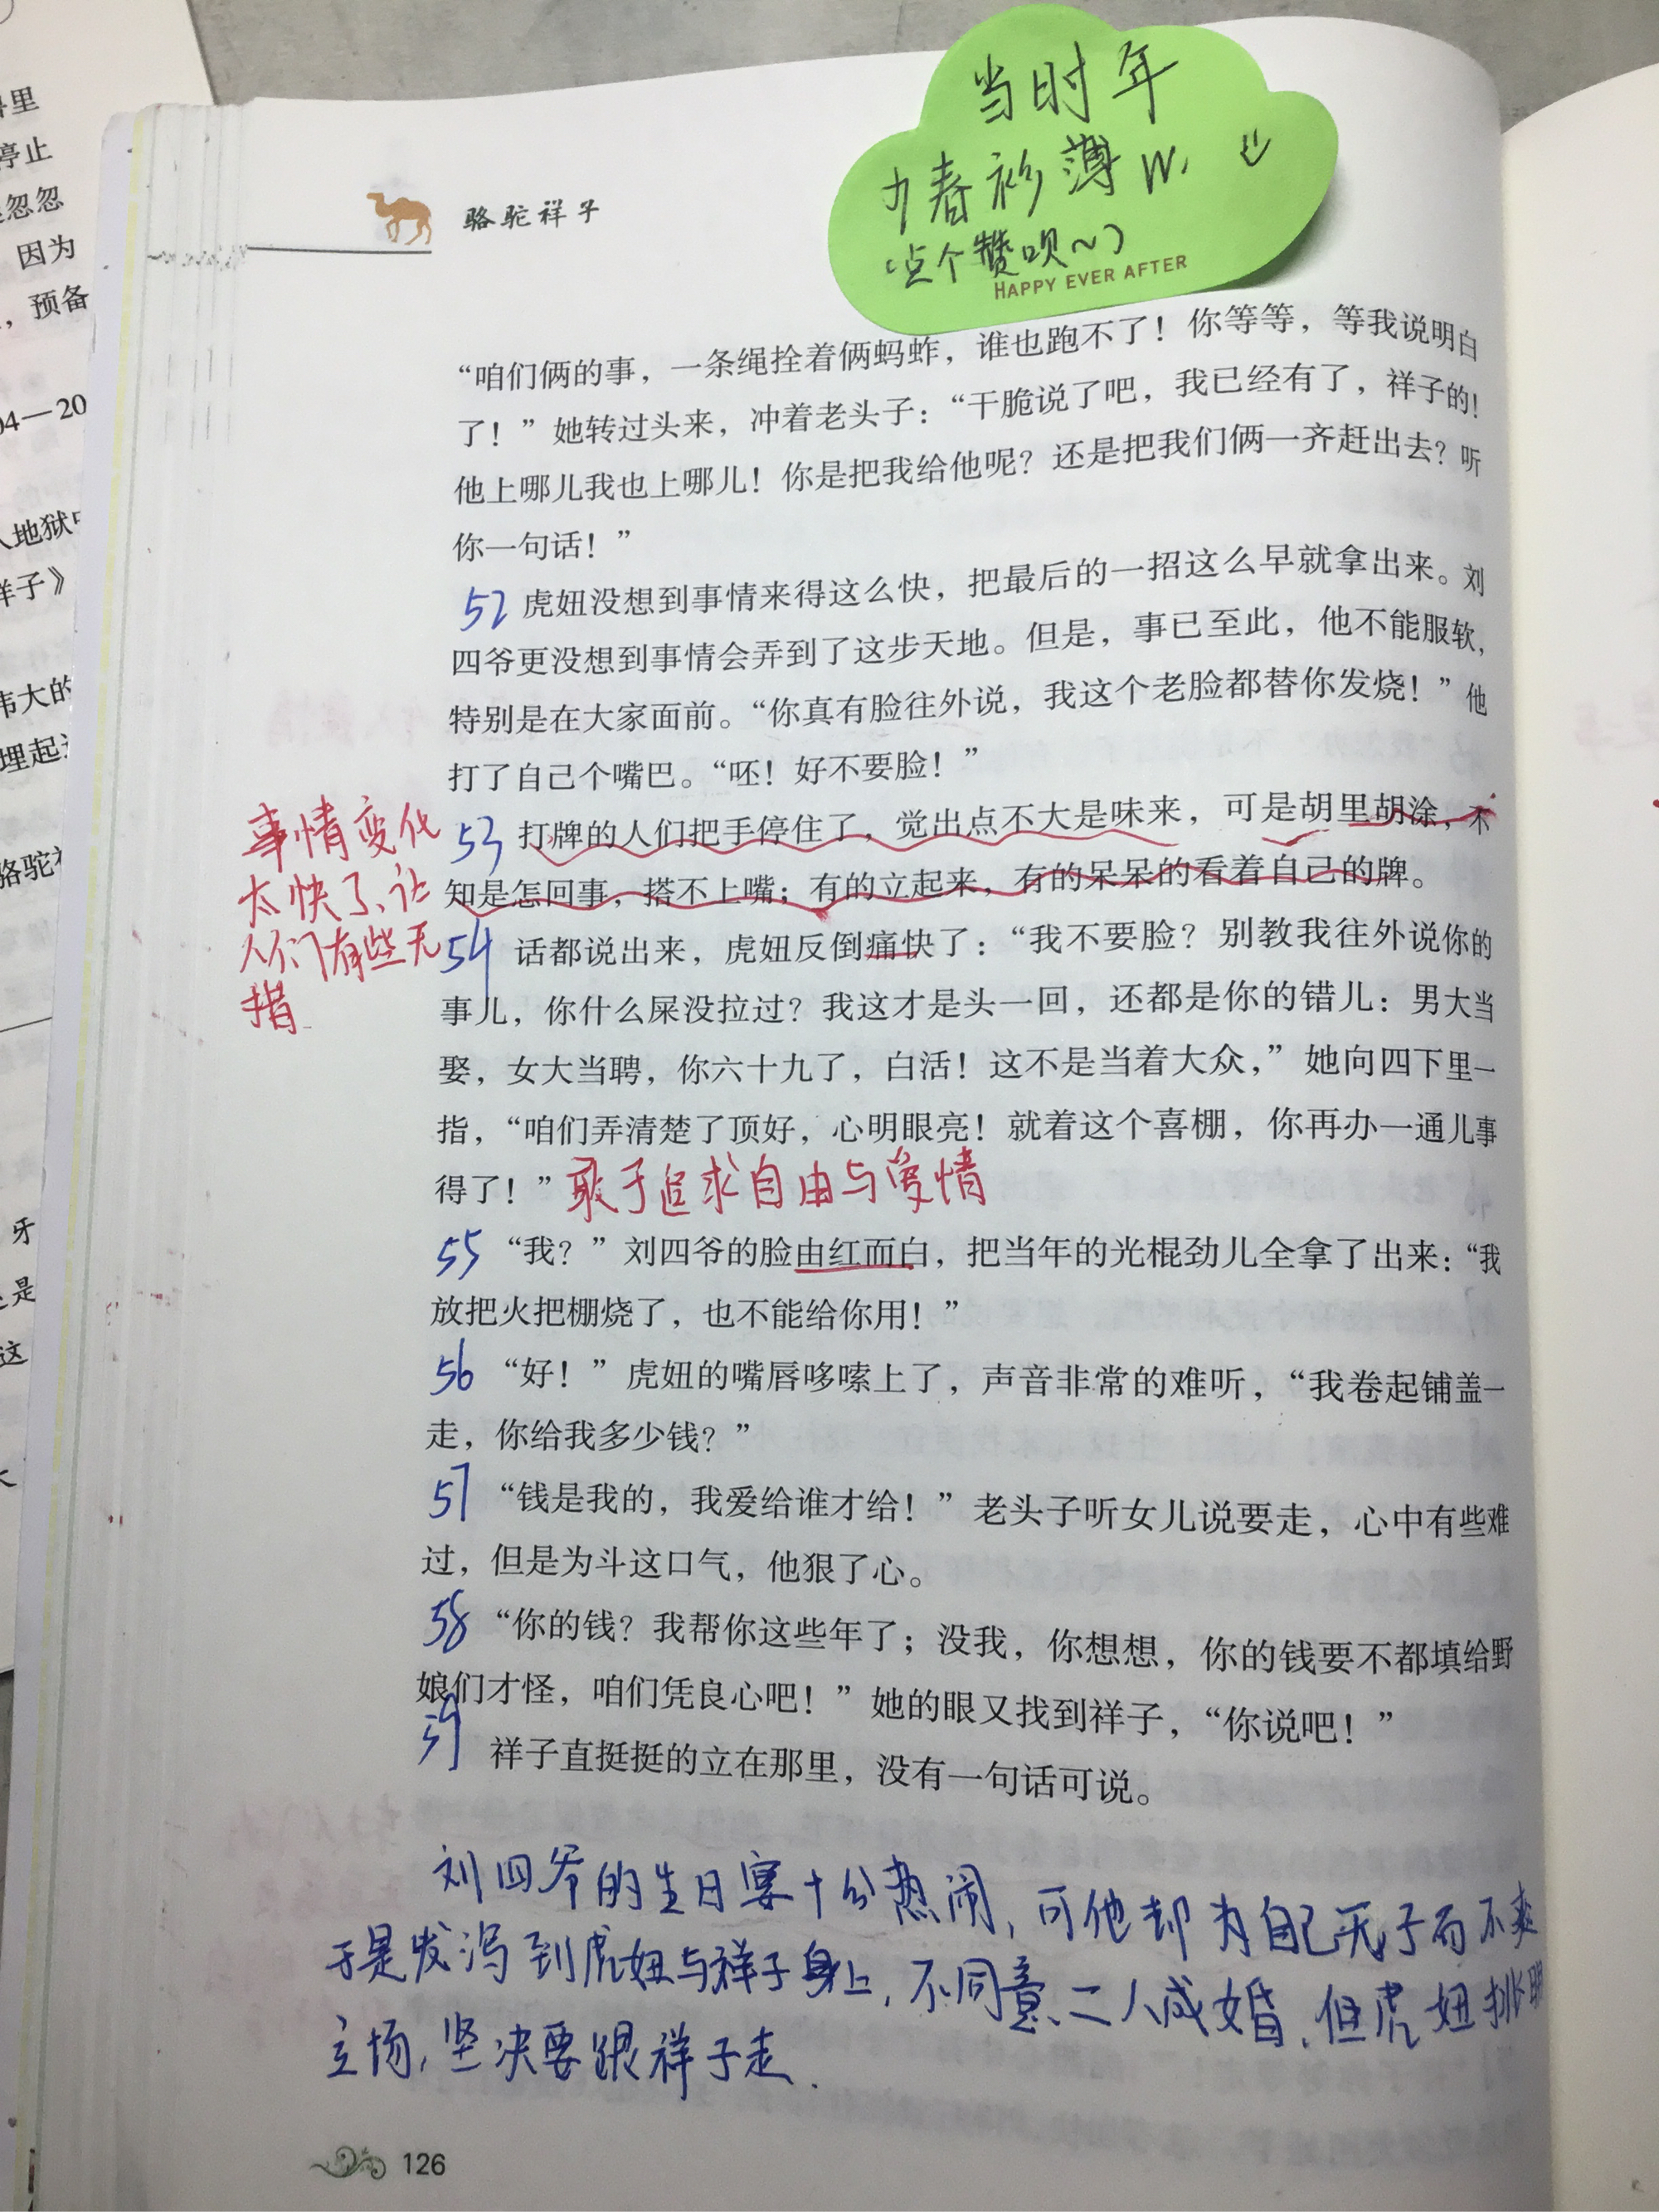 当时年
少春衫薄W.
(点个赞呗~)
HAPPY EVER AFTER
骆驼祥子
“咱们俩的事，一条绳拴着俩蚂蚱，谁也跑不了！你等等，等我说明白
了！”她转过头来，冲着老头子：“干脆说了吧，我已经有了，祥子的！
他上哪儿我也上哪儿！你是把我给他呢？还是把我们俩一齐赶出去？听
你一句话！”
52 虎妞没想到事情来得这么快，把最后的一招这么早就拿出来。刘
四爷更没想到事情会弄到了这步天地。但是，事已至此，他不能服软，
特别是在大家面前。“你真有脸往外说，我这个老脸都替你发烧！”他
打了自己个嘴巴。“呸！好不要脸！”
53 打牌的人们把手停住了，觉出点不大是味来，可是胡里胡涂，不
知是怎回事，搭不上嘴；有的立起来，有的呆呆的看着自己的牌。
事情变化
太快了、让
人们有些无
措
54 话都说出来，虎妞反倒痛快了：“我不要脸？别教我往外说你的
事儿，你什么屎没拉过？我这才是头一回，还都是你的错儿：男大当
娶，女大当聘，你六十九了，白活！这不是当着大众，”她向四下里一
指，“咱们弄清楚了顶好，心明眼亮！就着这个喜棚，你再办一通儿事
得了！”敢于追求自由与爱情
55 “我？”刘四爷的脸由红而白，把当年的光棍劲儿全拿了出来：“我
放把火把棚烧了，也不能给你用！”
56 “好！”虎妞的嘴唇哆嗦上了，声音非常的难听，“我卷起铺盖一
走，你给我多少钱？”
57 “钱是我的，我爱给谁才给！”老头子听女儿说要走，心中有些难
过，但是为斗这口气，他狠了心。
58 “你的钱？我帮你这些年了；没我，你想想，你的钱要不都填给野
娘们才怪，咱们凭良心吧！”她的眼又找到祥子，“你说吧！”
59 祥子直挺挺的立在那里，没有一句话可说。
刘四爷的生日宴十分热闹，可他却为自己无子而不爽
于是发泻到虎妞与祥子身上，不同意二人成婚．但虎妞挑明
立场，坚决要跟祥子走．
126
里
停止
忽忽
因为
，预备
04—20
人地狱
祥子》
伟大的
埋起
骆驼
牙
是
这